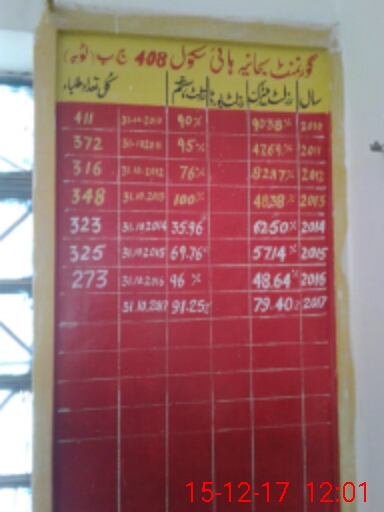 گورنمنٹ سبحانیہ ہائی سکول 408 ج ب (ٹوبہ)
سال رزلٹ میٹرک رزلٹ ہشتم کل تعداد طلباء
2010 90.38% 90% 31-10-2010 411
2011 47.69% 95% 31-10-2011 372
2012 82.97% 76% 31.10.2012 316
2013 48.38% 100% 31.10.2013 348
2014 62.50% 35.96% 31.10.2014 323
2015 57.14% 69.76% 31.10.2015 325
2016 48.64% 96% 31.10.2016 273
2017 79.40% 91.25% 31.10.2017
15-12-17 12:01